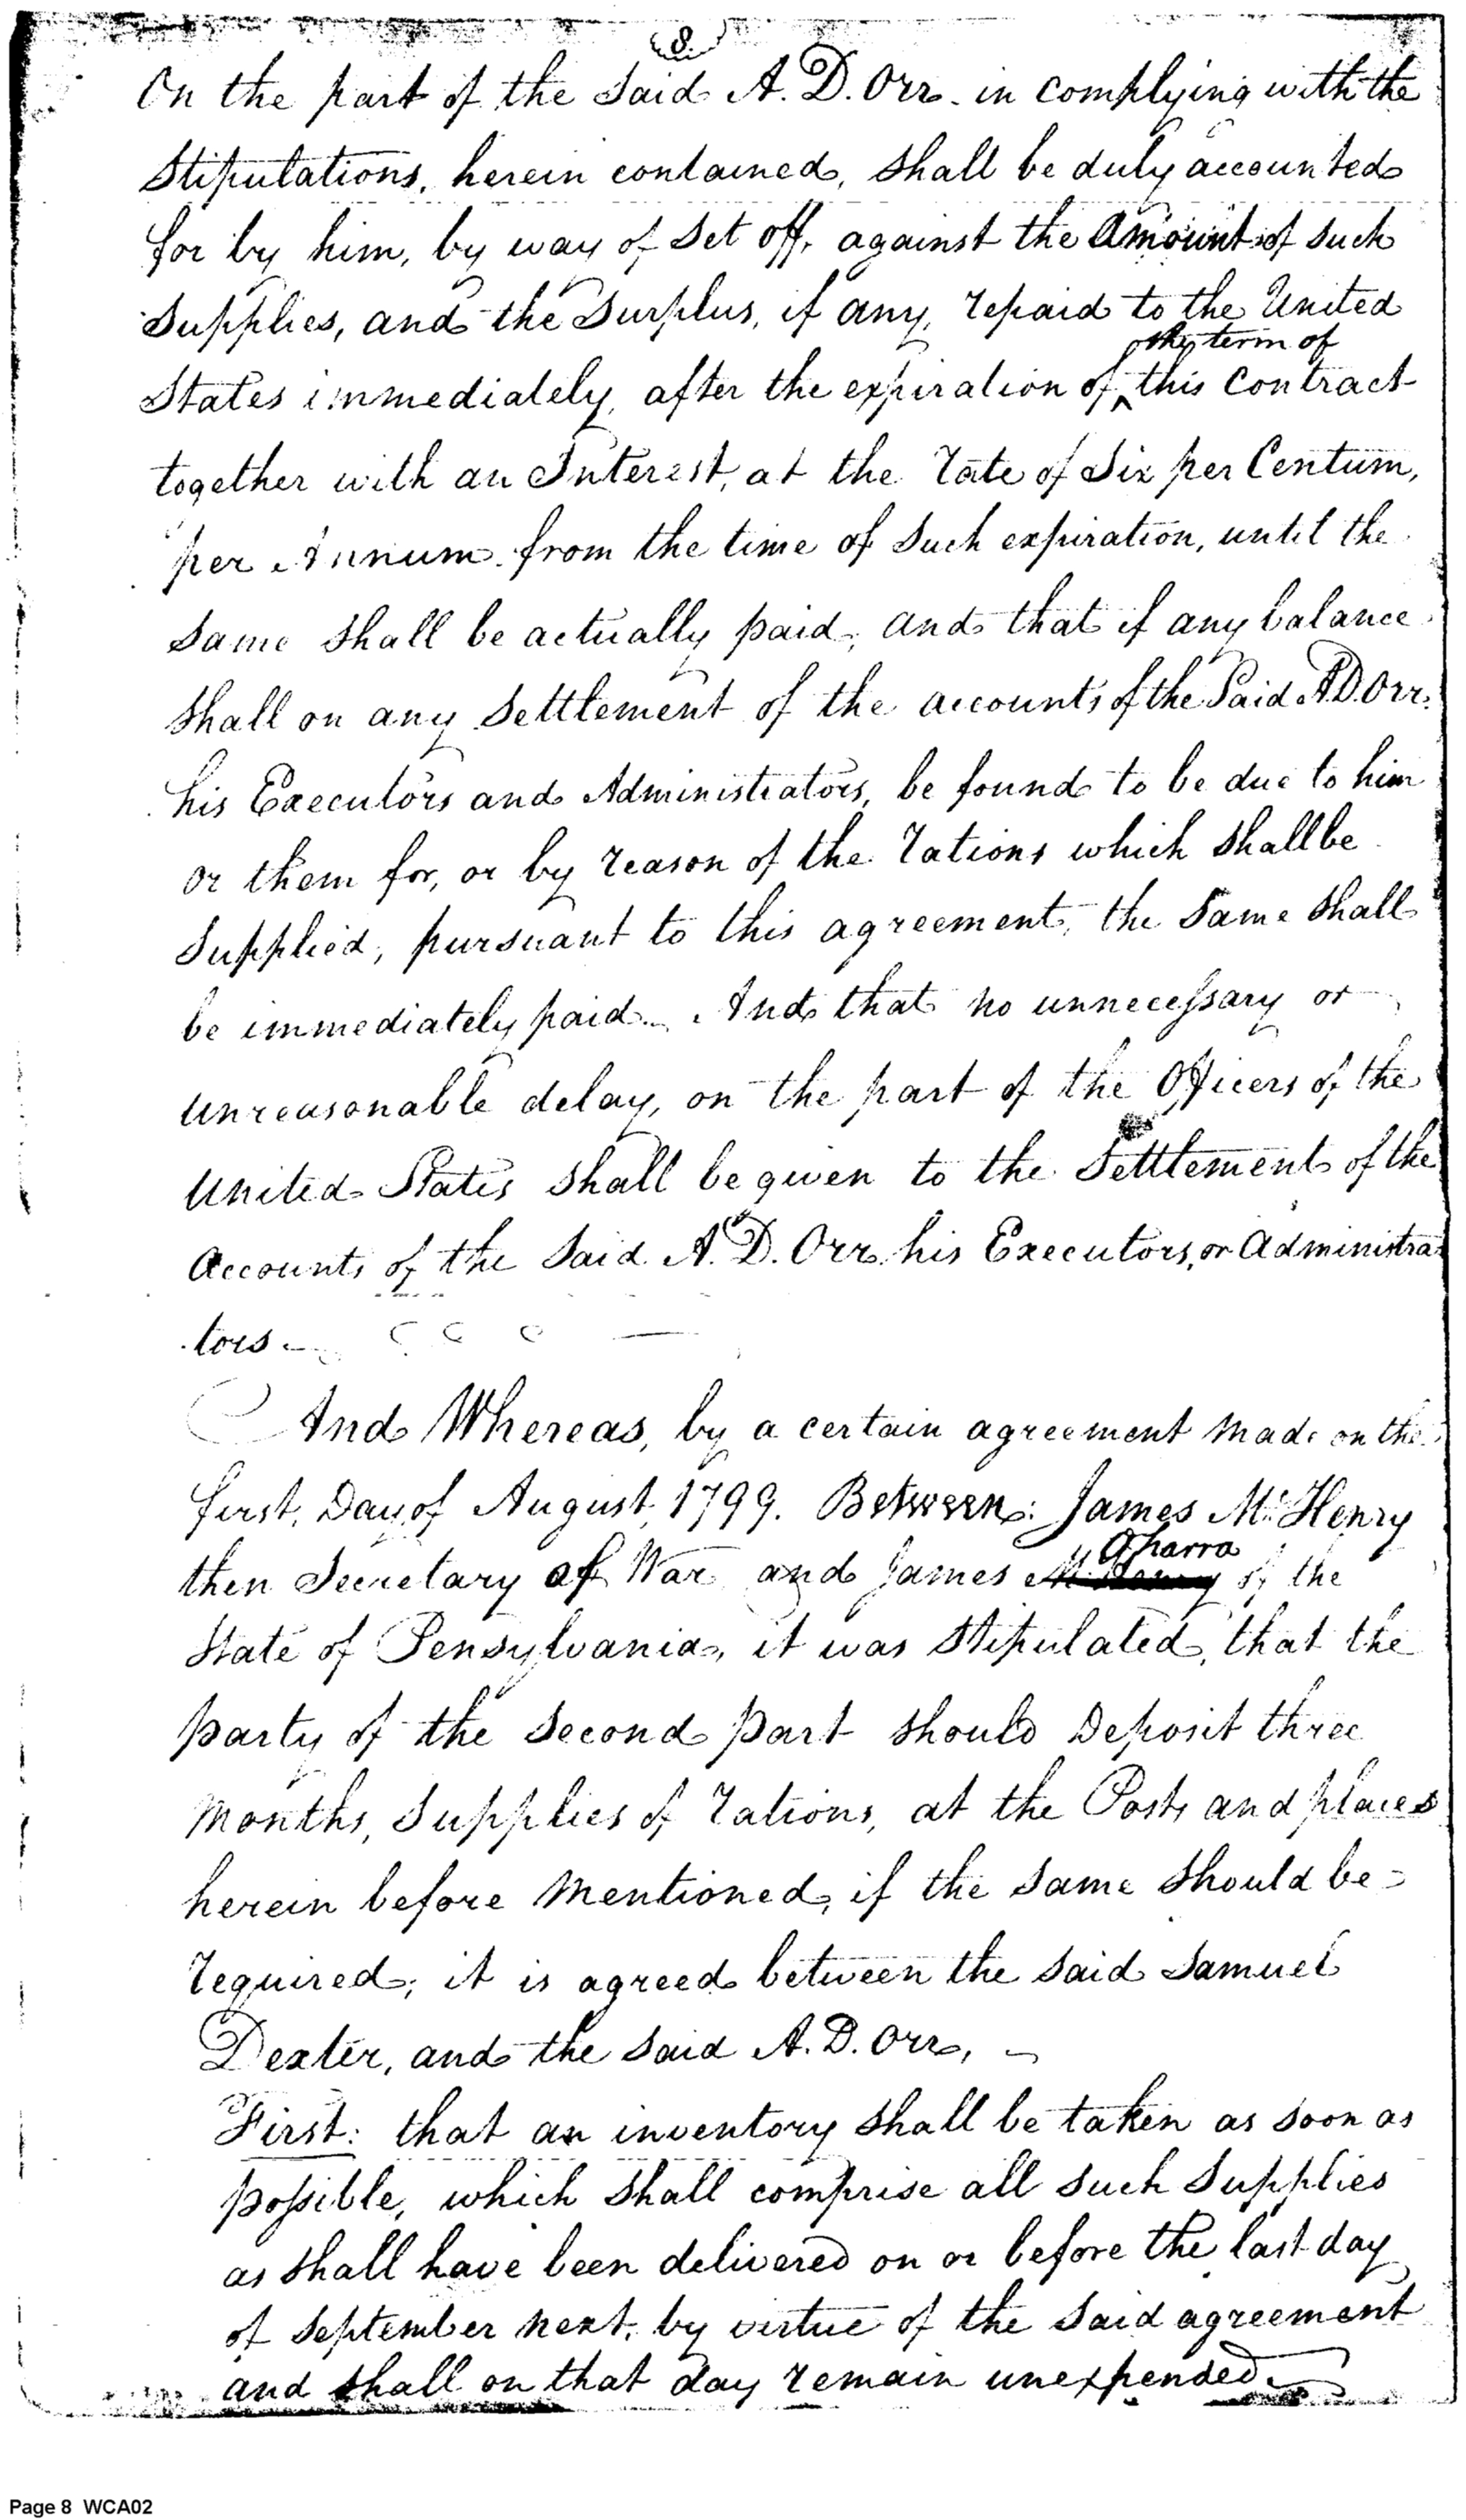 8.
On the part of the Said A. D. Orr. in complying with the
Stipulations, herein contained, shall be duly accounted
for by him, by way of Set off, against the Amount of such
Supplies, and the Surplus, if any, repaid to the United
the term of
States immediately, after the expiration of ^ this Contract
together with an Interest, at the rate of Six per Centum,
per Annum from the time of Such expiration, until the
Same shall be actually paid, and that if any balance
Shall on any Settlement of the accounts of the Said A. D. Orr.
his Executors and Administrators, be found to be due to him
or them for, or by reason of the rations which shall be
Supplied, pursuant to this agreement, the Same shall
be immediately paid. And that no unnecessary or
unreasonable delay, on the part of the Officers of the
United States shall be given to the Settlement of the
Accounts of the Said A. D. Orr his Executors, or Administra
tors
And Whereas, by a certain agreement made on the
first, Day of August, 1799. Between: James McHenry
Oharra
then Secretary of War and James McHenry of the
State of Pensylvania, it was Stipulated, that the
party of the Second part should Deposit three
Months, Supplies of rations, at the Posts and places
herein before mentioned, if the Same Should be
required, it is agreed between the Said Samuel
Dexter, and the Said A. D. Orr,
First: that an inventory shall be taken as soon as
possible, which shall comprise all such Supplies
as shall have been delivered on or before the last day
of September next, by virtue of the Said agreement
and shall on that day remain unexpended.
Page 8 WCA02